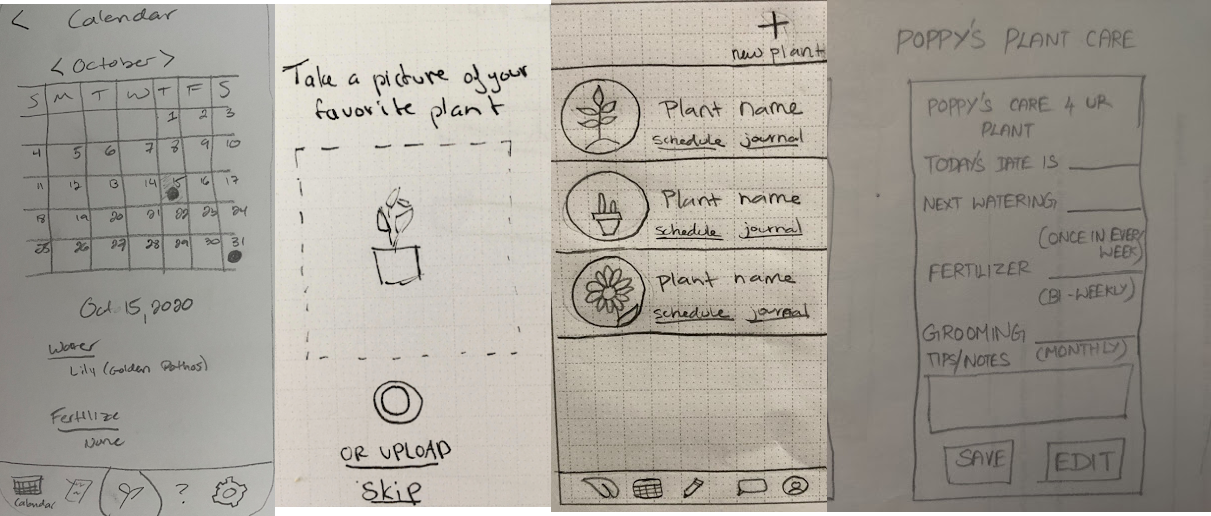 < Calendar
< October >
S M T W T F S
1 2 3
4 5 6 7 8 9 10
11 12 13 14 15 16 17
18 19 20 21 22 23 24
25 26 27 28 29 30 31
Oct 15, 2020
Water
Lily (Golden Pothos)
Fertilize
None
Calendar
?
Take a picture of your
favorite plant
OR UPLOAD
Skip
+
new plant
Plant name
schedule journal
Plant name
schedule journal
plant name
schedule journal
POPPY'S PLANT CARE
POPPY'S CARE 4 UR
PLANT
TODAY'S DATE IS
NEXT WATERING
(ONCE IN EVERY
WEEK)
FERTILIZER
(BI-WEEKLY)
GROOMING
(MONTHLY)
TIPS/NOTES
SAVE EDIT